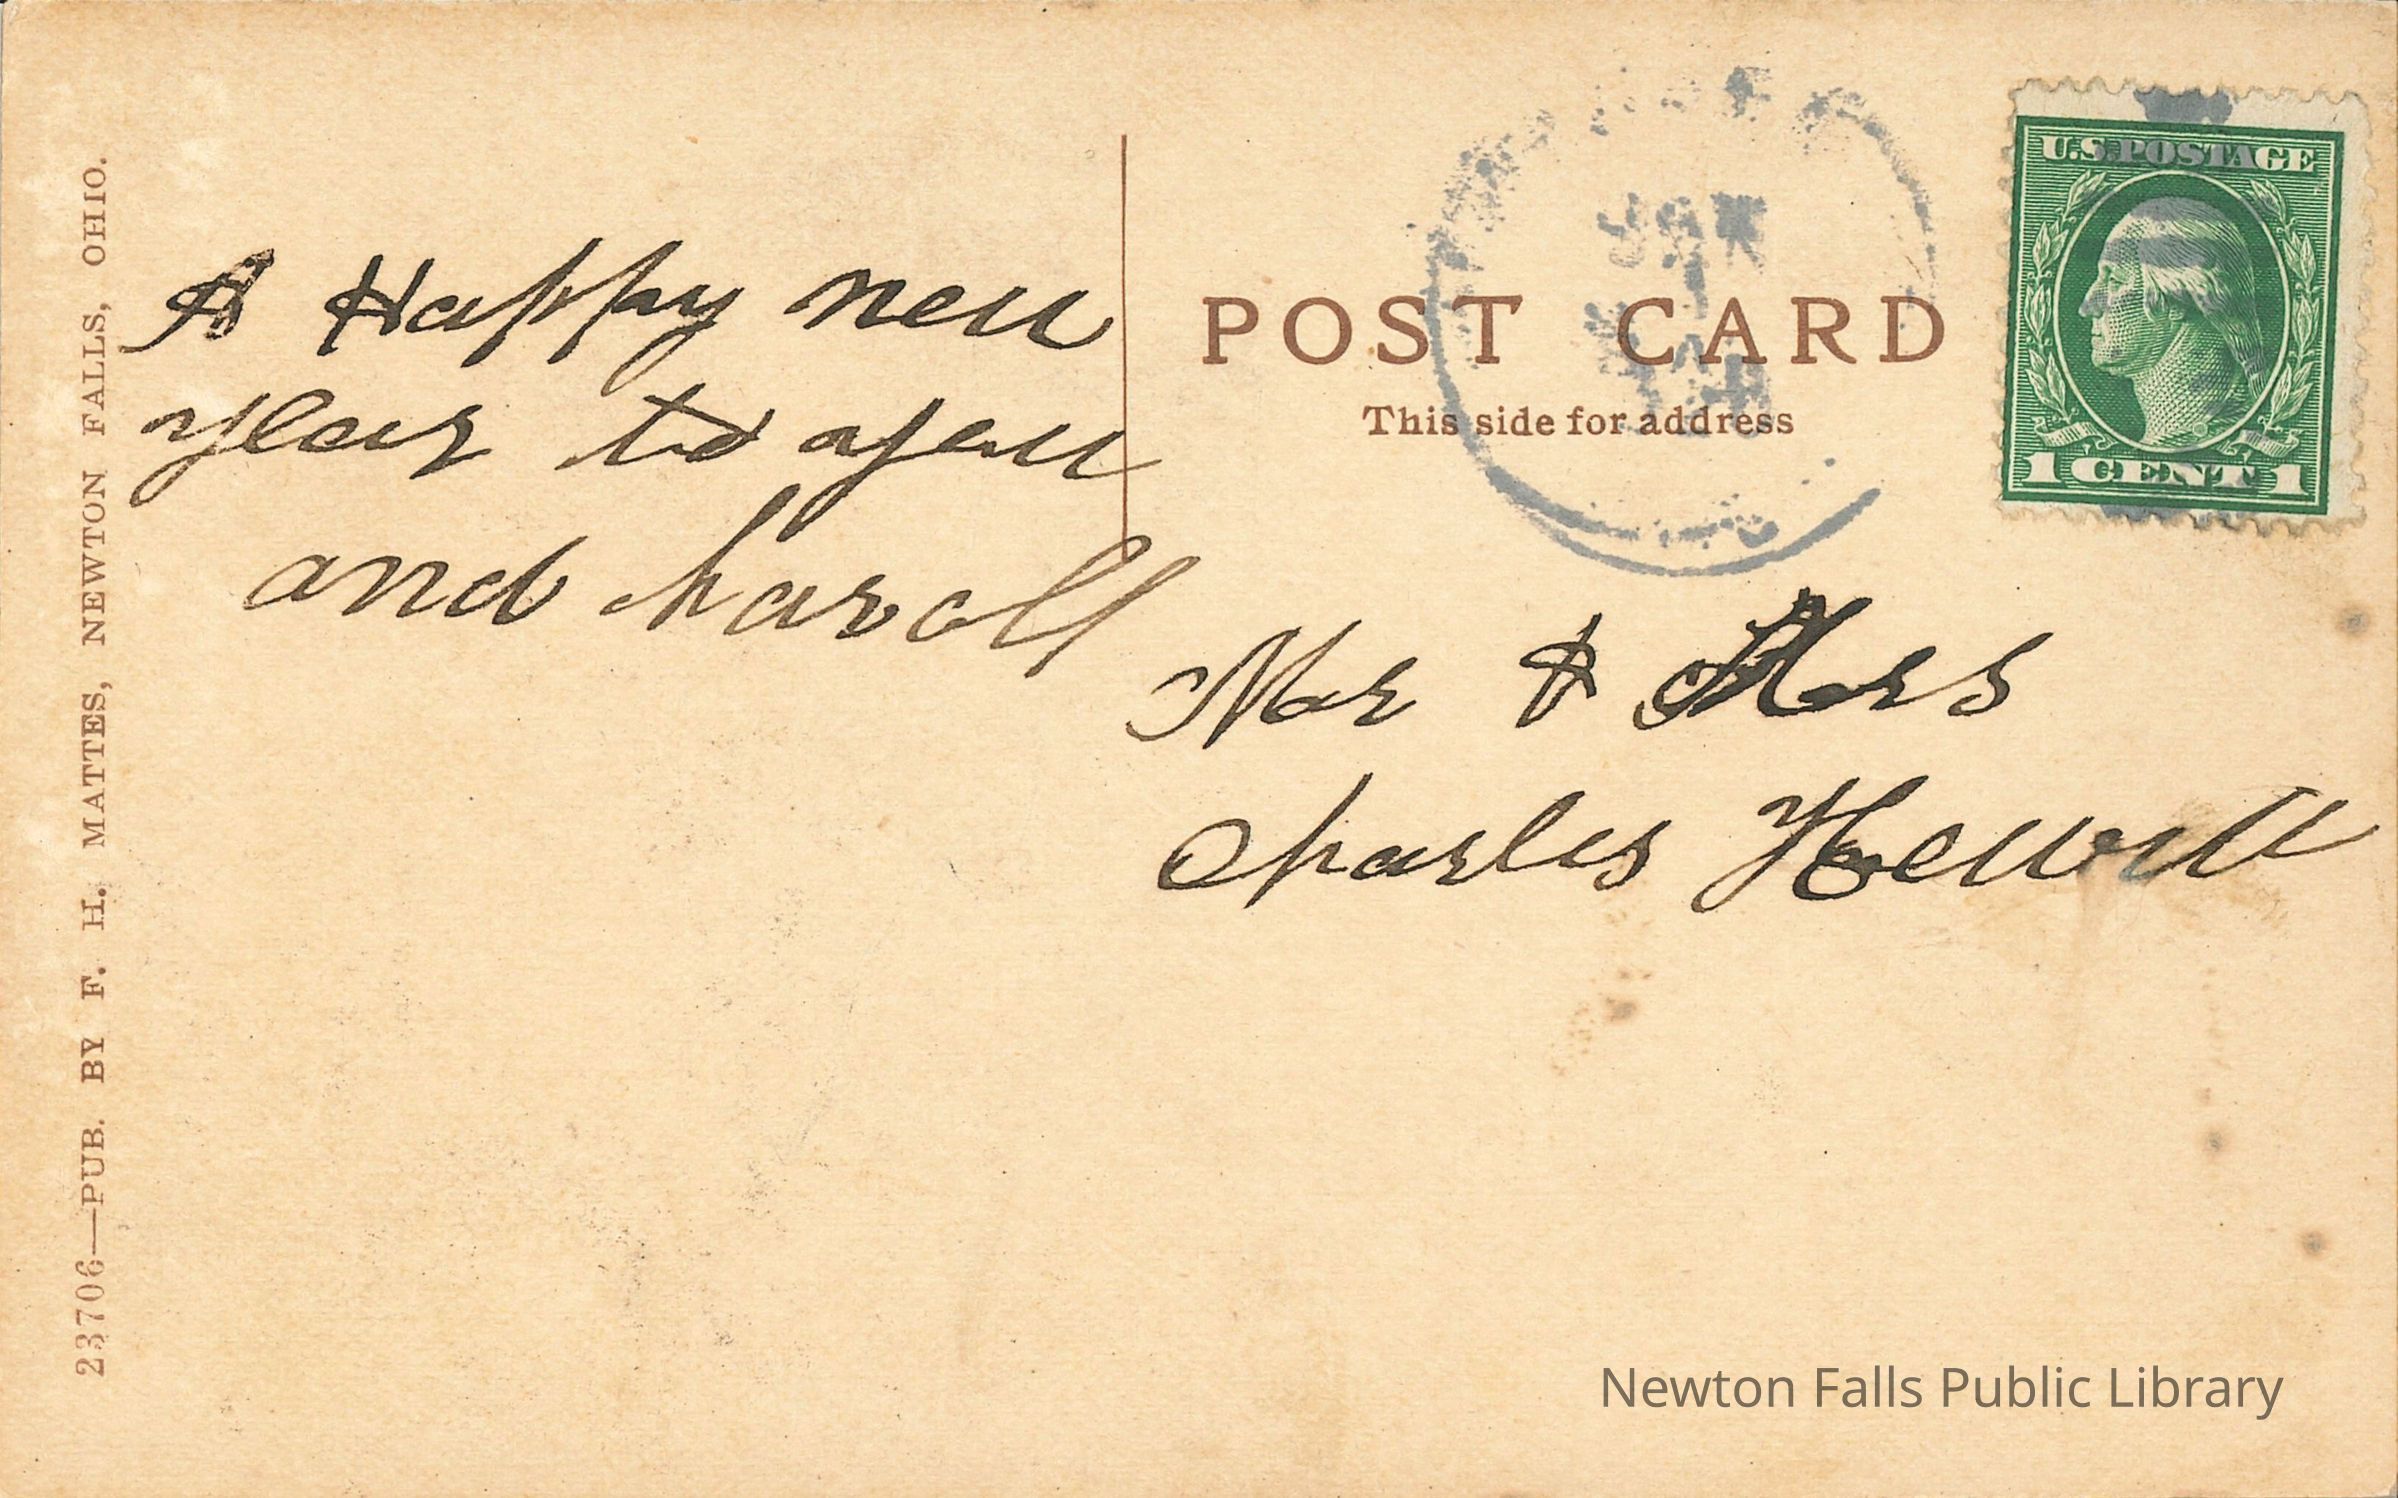 23706—PUB. BY F. H. MATTES, NEWTON FALLS, OHIO.
A Happy new
year to you
and haroll
POST CARD
This side for address
JAN
U.S. POSTAGE
1 CENT 1
Mr & Mrs
Charles Hewitt
Newton Falls Public Library